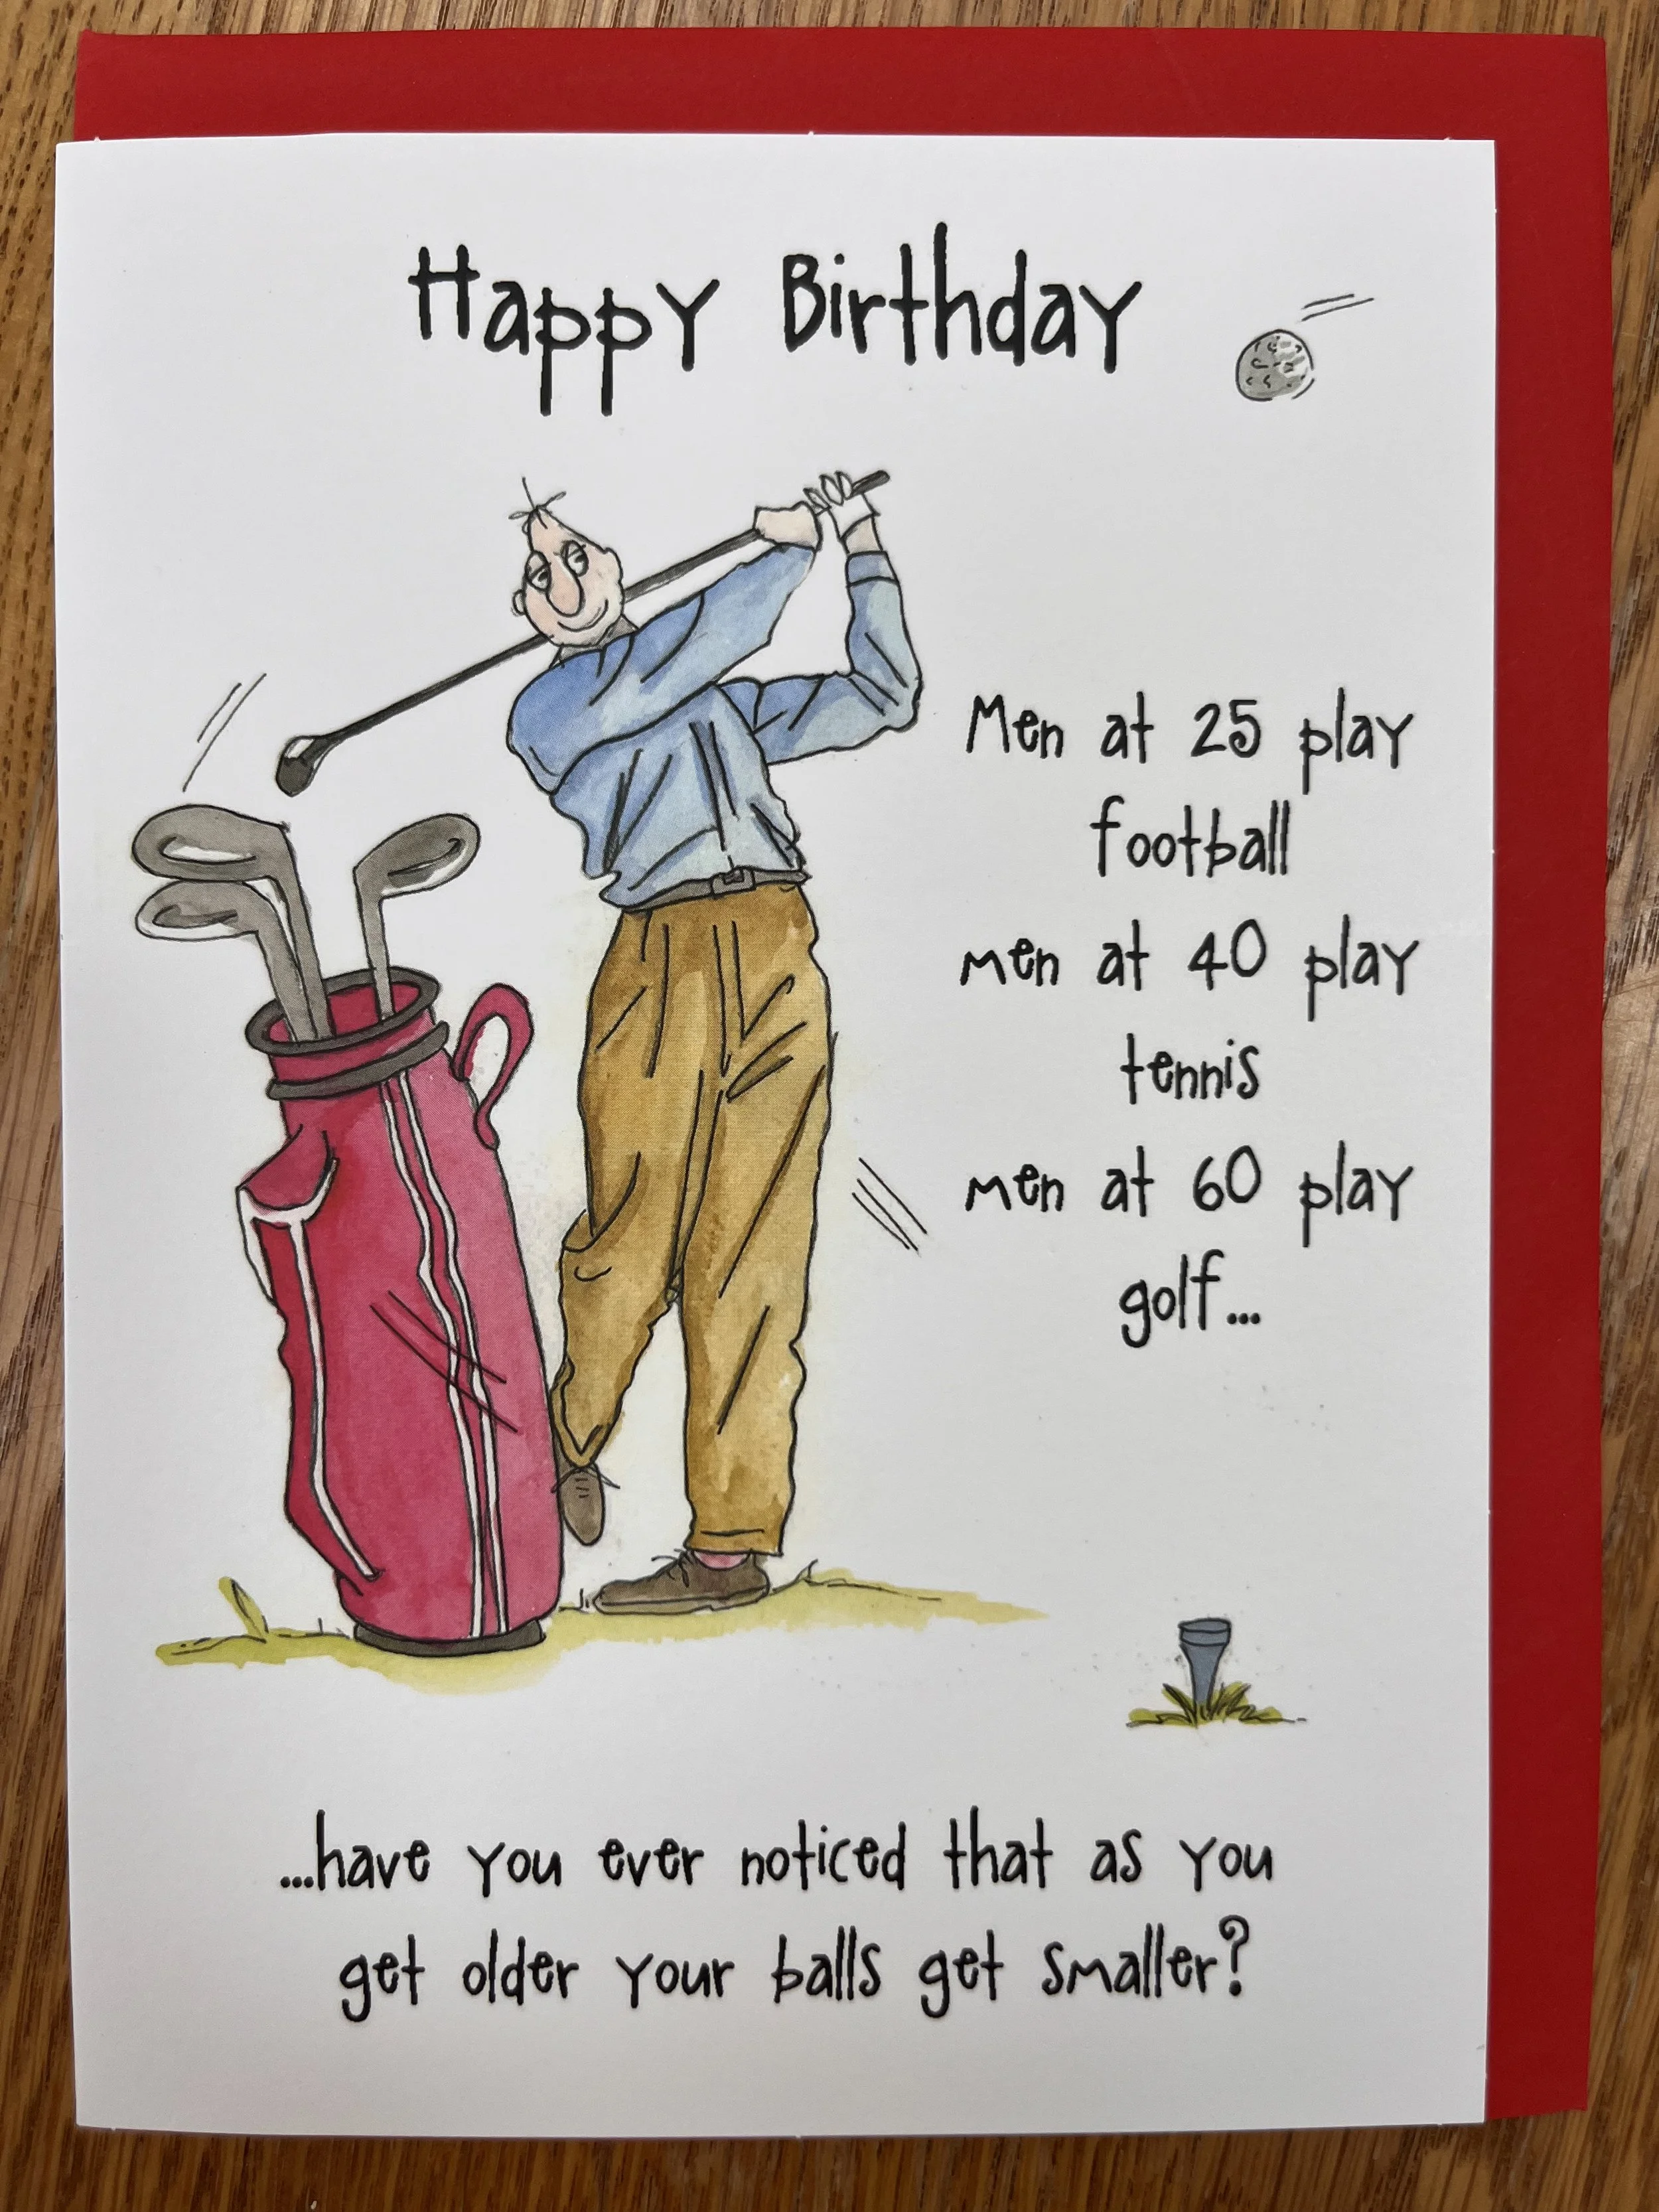 Happy Birthday
Men at 25 play
football
men at 40 play
tennis
men at 60 play
golf...
...have you ever noticed that as you
get older your balls get smaller?